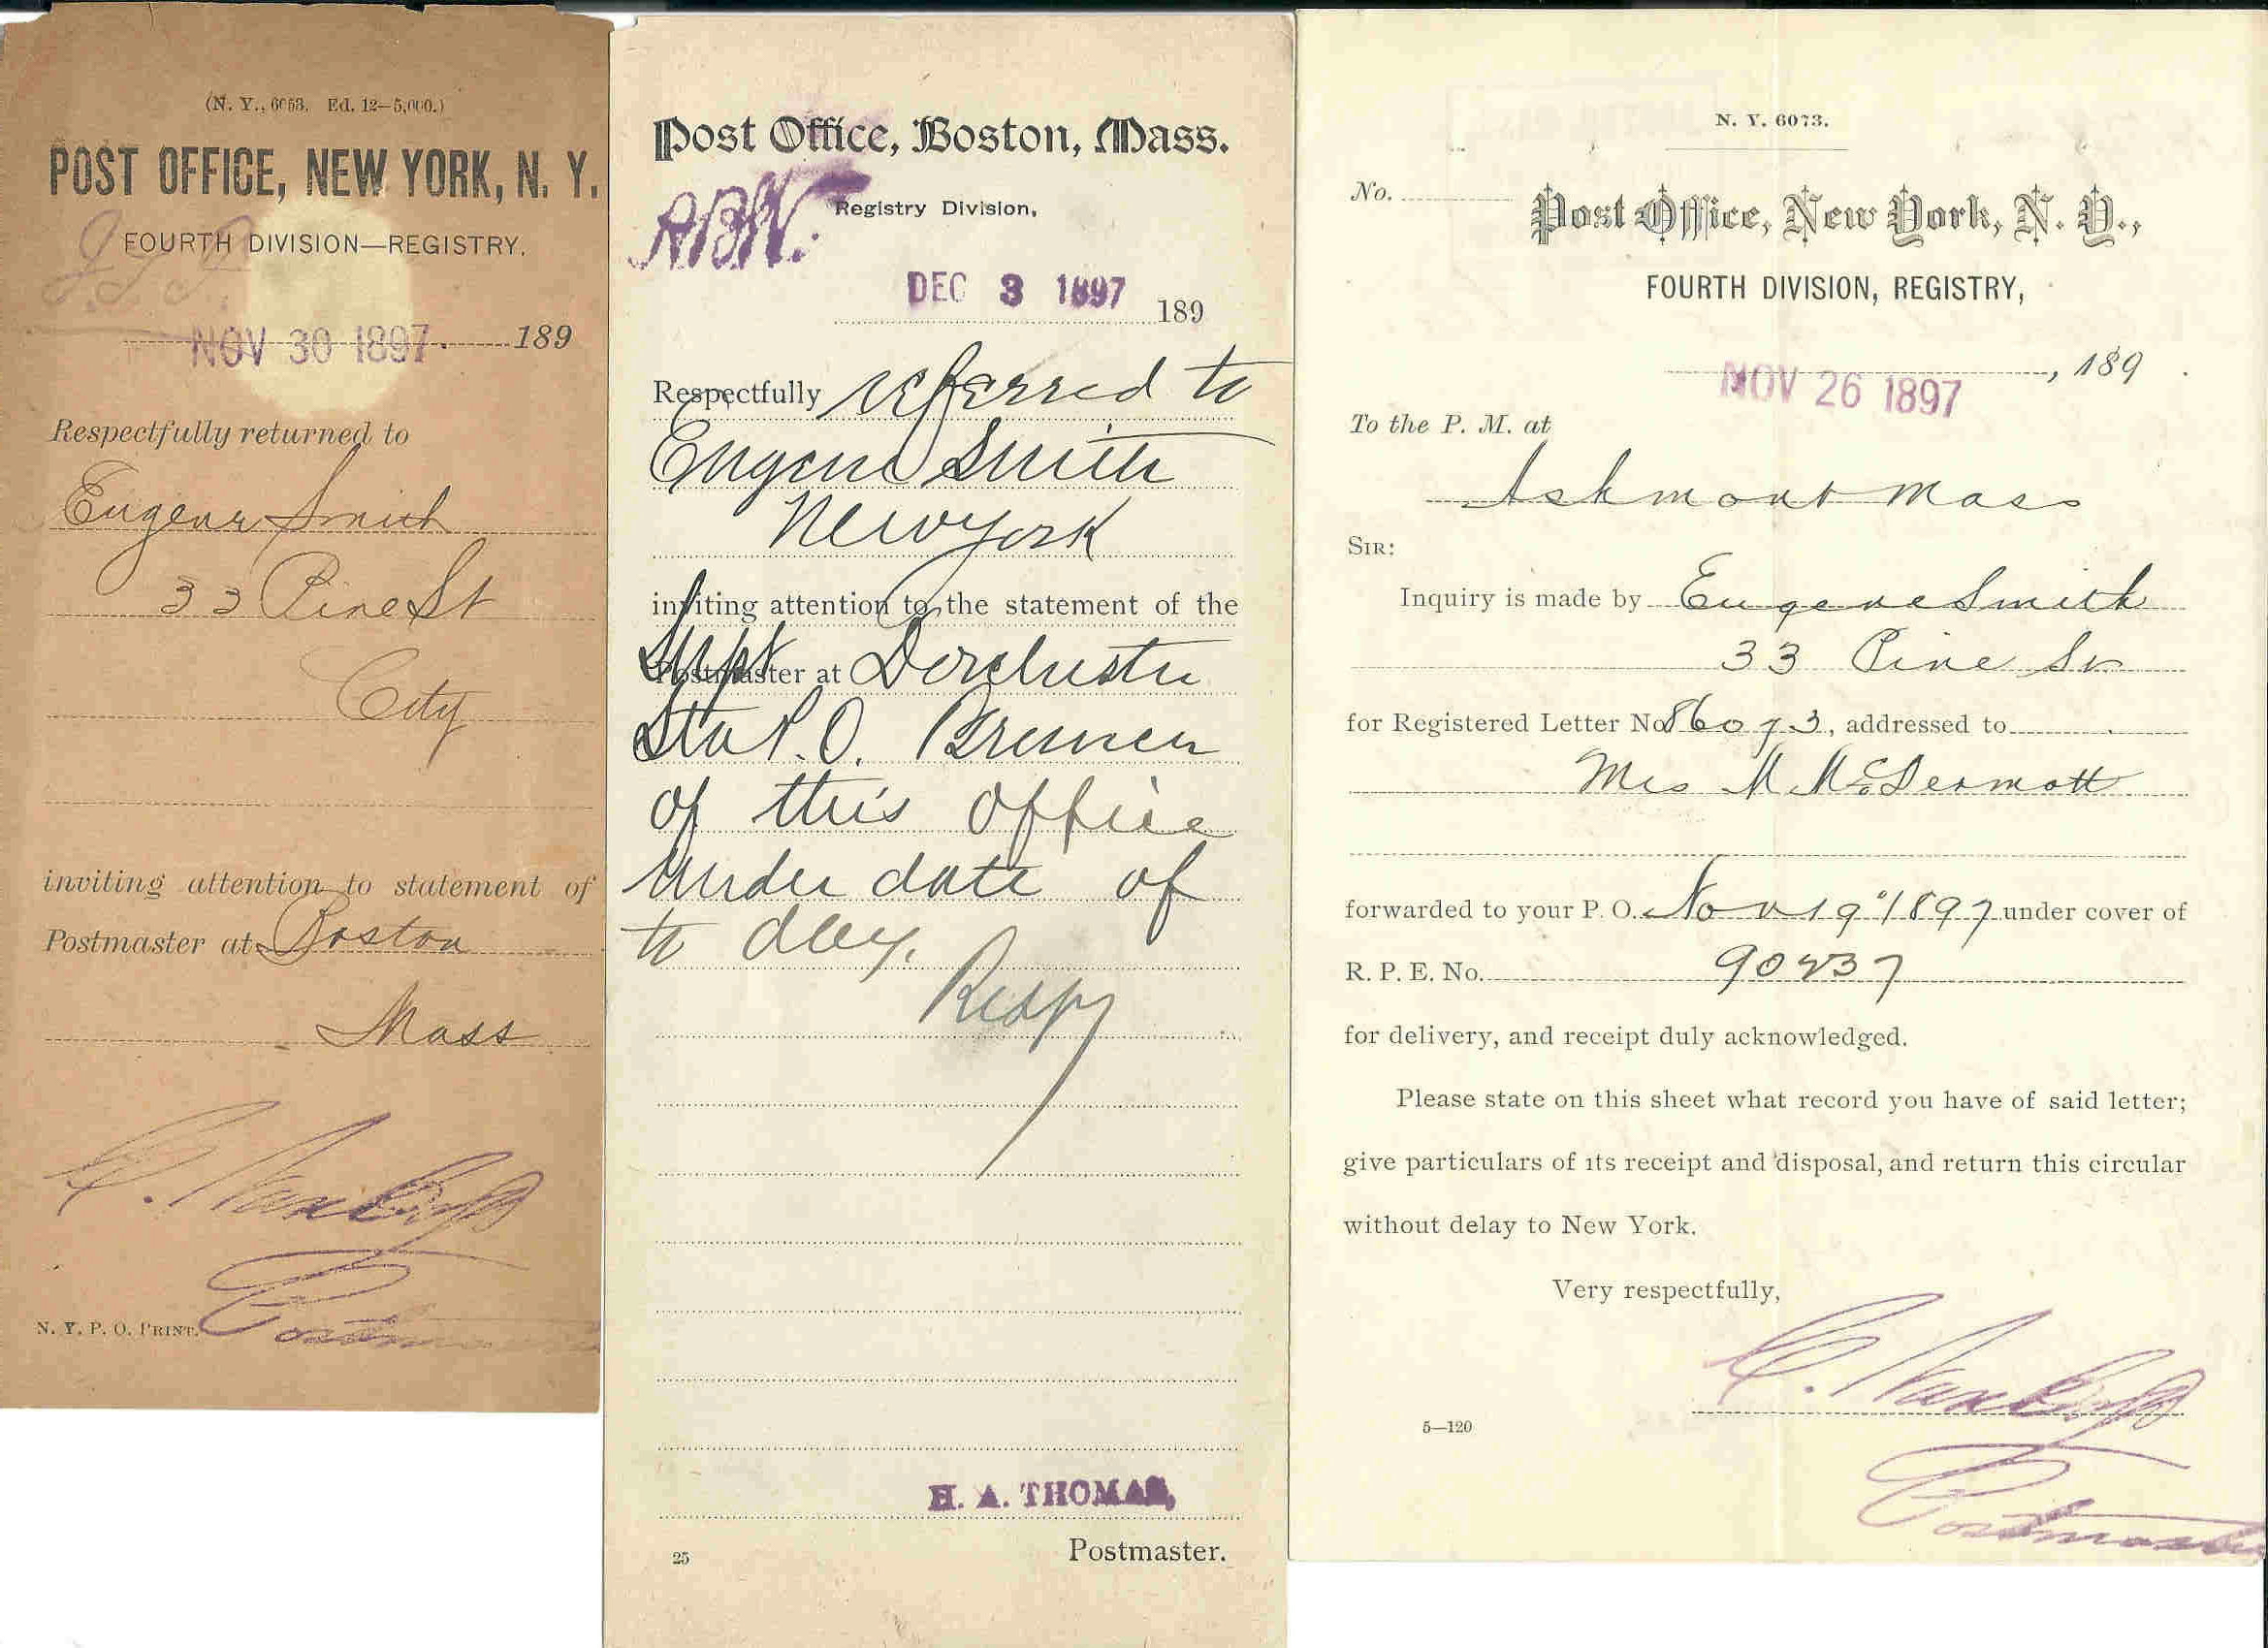 (N. Y., 6053. Ed. 12—5,000.)
POST OFFICE, NEW YORK, N. Y.
FOURTH DIVISION—REGISTRY.
NOV 30 1897. 189
Respectfully returned to
Eugene Smith
33 Pine St
City
inviting attention to statement of
Postmaster at Boston
Mass
C. Van Cott
Postmaster
N. Y. P. O. PRINT.
Post Office, Boston, Mass.
Registry Division,
DEC 3 1897 189
Respectfully referred to
Eugene Smith
New York
inviting attention to the statement of the
Supt
Postmaster at Dorchester
Sta P.O. Branch
of this office
under date of
to day.
Respy
H. A. THOMAS,
25
Postmaster.
N. Y. 6073.
No.
Post Office, New York, N. Y.,
FOURTH DIVISION, REGISTRY,
NOV 26 1897, 189
To the P. M. at
Ashmont Mass
SIR:
Inquiry is made by Eugene Smith
33 Pine St
for Registered Letter No 86073, addressed to
Mrs M McDermott
forwarded to your P. O. Nov 19 1897 under cover of
R. P. E. No. 90237
for delivery, and receipt duly acknowledged.
Please state on this sheet what record you have of said letter;
give particulars of its receipt and disposal, and return this circular
without delay to New York.
Very respectfully,
C. Van Cott
5—120
Postmaster